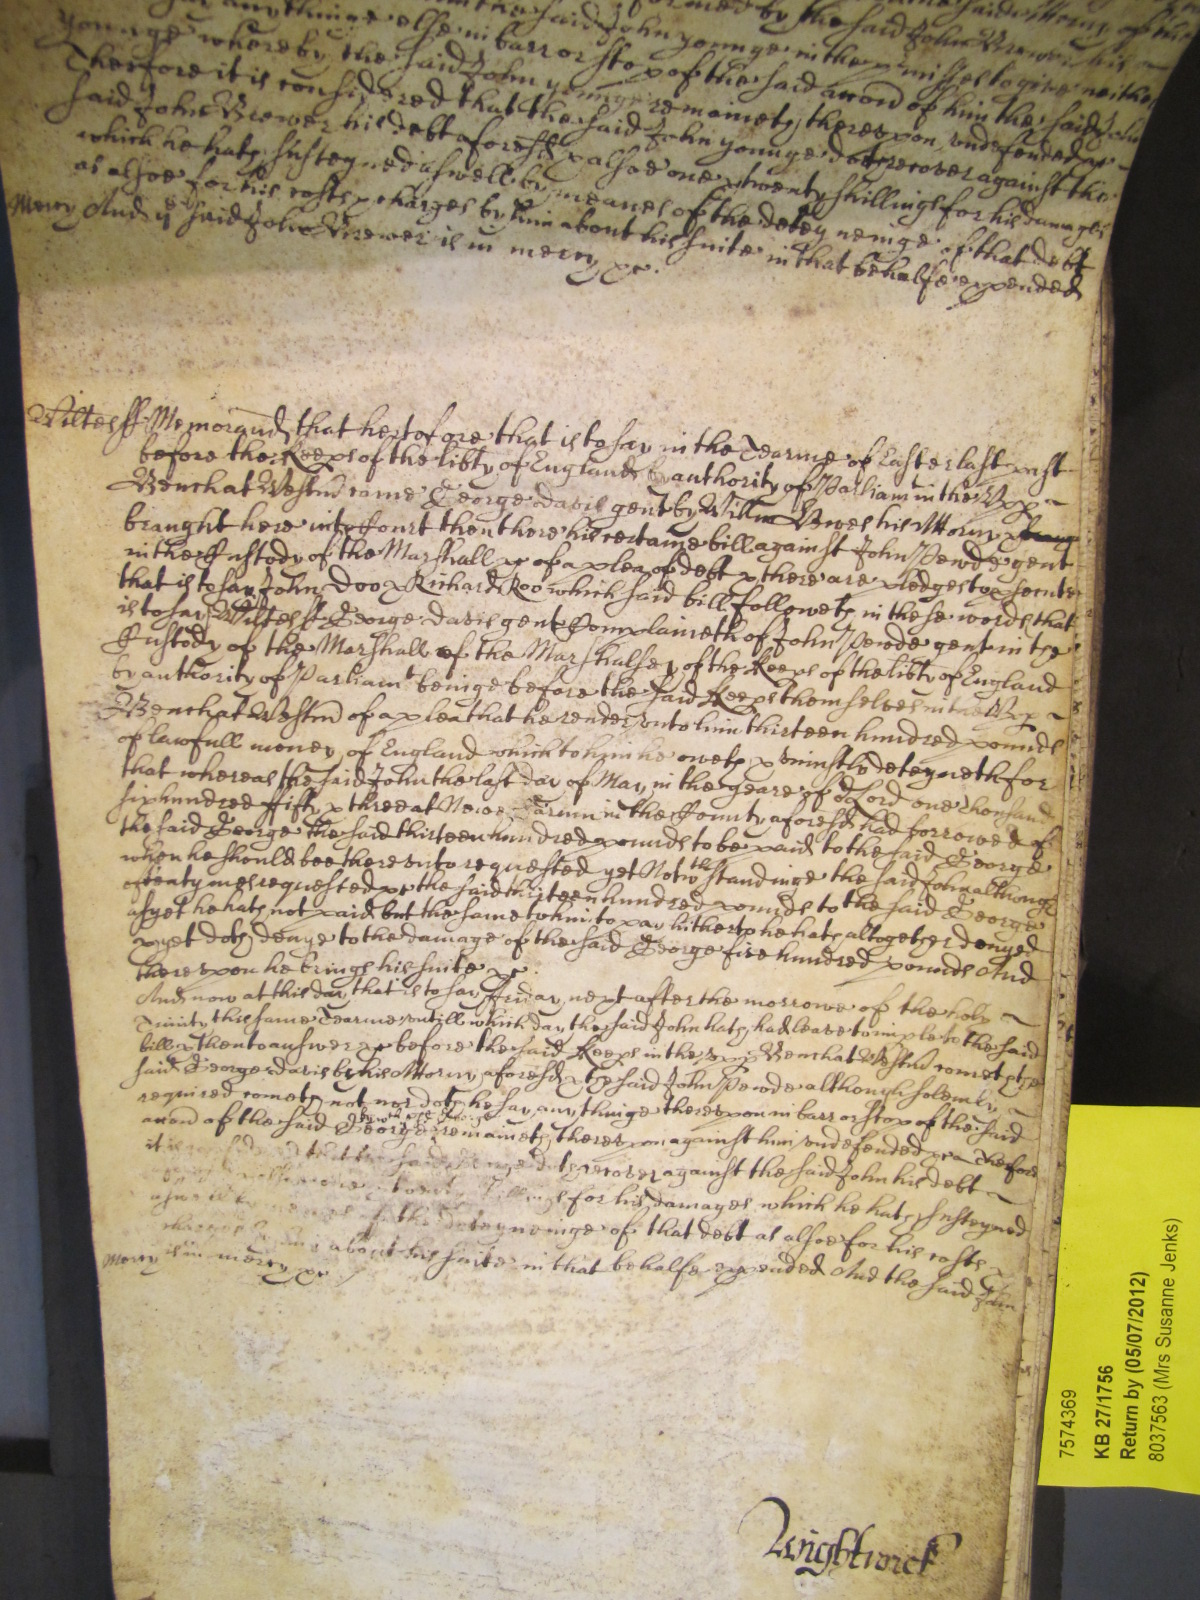 any thinge else in barr or stop of the said accon of him the said John
younge whereby the said John younge remaineth thereupon undefended &c
Therfore it is considered that the said John younge doe recover against the
said John Brewer his debt aforesd & alsoe one & twenty shillings for his damages
which he hath susteyned aswell by meanes of the deteyneinge of that debt
as alsoe for his costs & charges by him about his suite in that behalfe expended
Mercy And ye said John Brewer is in mercy &c.
Wiltes ss Memorand that hertofore that is to say in the Tearme of Easter last past
before the Keeps of the libty of England by authority of Parliam in the Upp
Bench at Westmr came George Davis gent by Willm his Attorny & brought
here into Court then there his certaine bill against John gent
in the Custody of the Marshall &c of a plea of debt & there are pledges to prosecute
that is to say John Doo & Richard Roo which said bill followeth in these words that
is to say Wiltes ss George Davis gent Complaineth of John gent in the
Custody of the Marshall of the Marshalsey of the Keeps of the libty of England
by authority of Parliamt beinge before the said Keeps themselves in the Upp
Bench at Westmr of a plea that he render unto him thirteen hundred pounds
of lawfull money of England which to him he oweth & uniustly deteyneth for
that whereas the said John the last day of May in the yeare of or Lord one thousand
six hundred fifty & three at Newe Sarum in the County aforesd had borrowed of
the said George the said thirteen hundred pounds to be paid to the said George
when he should bee thereunto requested yet Notwthstandinge the said John although
oftentymes requested &c the said thirteen hundred pounds to the said George
as yet he hath not paid but the same to him to pay hitherto he hath altogether denyed
& yet doth denye to the damage of the said George five hundred pounds And
thereupon he brings his suite &c.
And now at this day that is to say Friday next after the morrowe of the holy
Trinity this same Tearme untill which day the said John hath had leave to imple to the said
bill & then to answer &c before the said Keeps in the upp Bench at Westmr cometh the
said George Davis by his Attorny aforesd & the said John although solemly
required cometh not nor doth he say any thinge thereupon in barr or stop of the said
accon of the said George whereby the said George remaineth thereupon against him undefended &c Therfore
it is considered that the said George doe recover against the said John his debt
twenty shillings for his damages which he hath susteyned
aswell by meanes of the deteyneinge of that debt as alsoe for his costs &
charges by him about his suite in that behalfe expended And the said John
Mercy is in mercy &c
Wightwick
7574369
KB 27/1756
Return by (05/07/2012)
8037563 (Mrs Susanne Jenks)